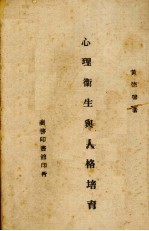 黄德馨著
心理衛生與人格培育
商務印書館印行